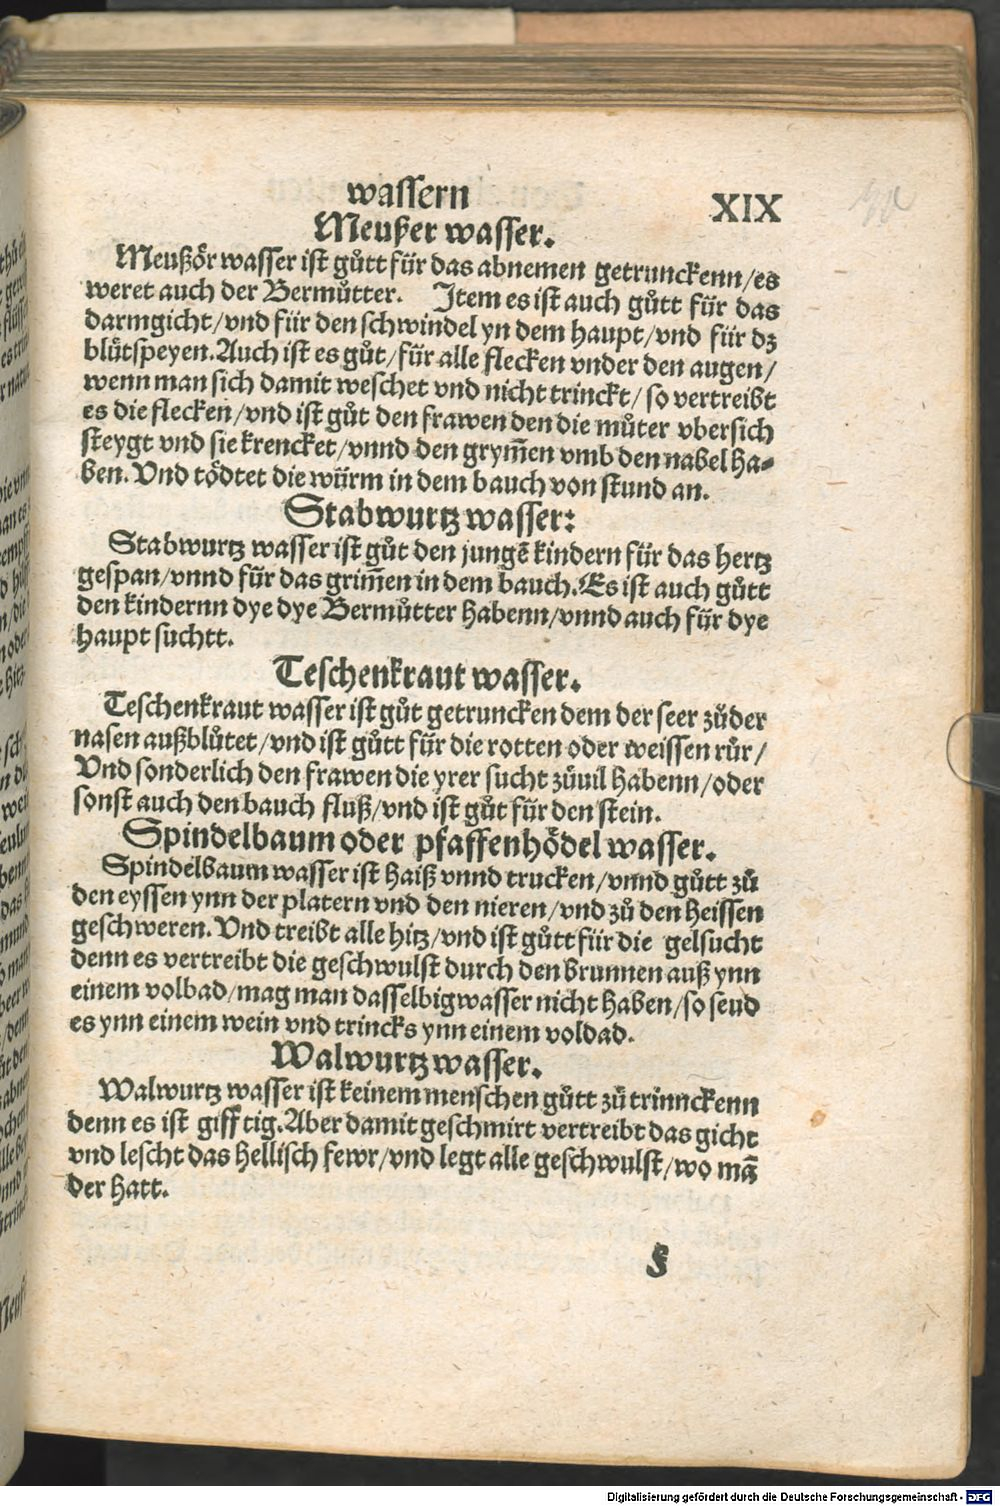 wassern
XIX
Meußer wasser.
Meußoͤr wasser ist guͦtt für das abnemen getrunckenn/es
weret auch der Bermuͦtter. Item es ist auch guͦtt für das
darmgicht/vnd für den schwindel yn dem haupt/vnd für dz
bluͦtspeyen. Auch ist es guͦt/für alle flecken vnder den augen/
wenn man sich damit weschet vnd nicht trinckt/ so vertreibt
es die flecken/vnd ist guͦt den frawen den die muͦter vbersich
steygt vnd sie krencket/vnnd den grym̄en vmb den nabel ha⸗
ben. Vnd toͤdtet die würm in dem bauch von stund an.
Stabwurtz wasser:
Stabwurtz wasser ist guͦt den jungē kindern für das hertz
gespan/vnnd für das grim̄en in dem bauch. Es ist auch guͦtt
den kindernn dye dye Bermuͦtter habenn/vnnd auch für dye
haupt suchtt.
Teschenkraut wasser.
Teschenkraut wasser ist guͦt getruncken dem der seer zuͦder
nasen außbluͦtet/vnd ist guͦtt für die rotten oder weissen ruͦr/
Vnd sonderlich den frawen die yrer sucht zuͦuil habenn/oder
sonst auch den bauch fluß/vnd ist guͦt für den stein.
Spindelbaum oder pfaffenhoͤdel wasser.
Spindelbaum wasser ist haiß vnnd trucken/vnnd guͦtt zuͦ
den eyssen ynn der platern vnd den nieren/vnd zuͦ den heissen
geschweren. Vnd treibt alle hitz/vnd ist guͦtt für die gelsucht
denn es vertreibt die geschwulst durch den brunnen auß ynn
einem volbad/mag man dasselbig wasser nicht haben/so seud
es ynn einem wein vnd trincks ynn einem voldad.
Walwurtz wasser.
Walwurtz wasser ist keinem menschen guͦtt zuͦ trinnckenn
denn es ist gifftig. Aber damit geschmirt vertreibt das gicht
vnd lescht das hellisch fewr/vnd legt alle geschwulst/wo mā
der hatt.
Digitalisierung gefördert durch die Deutsche Forschungsgemeinschaft - DFG